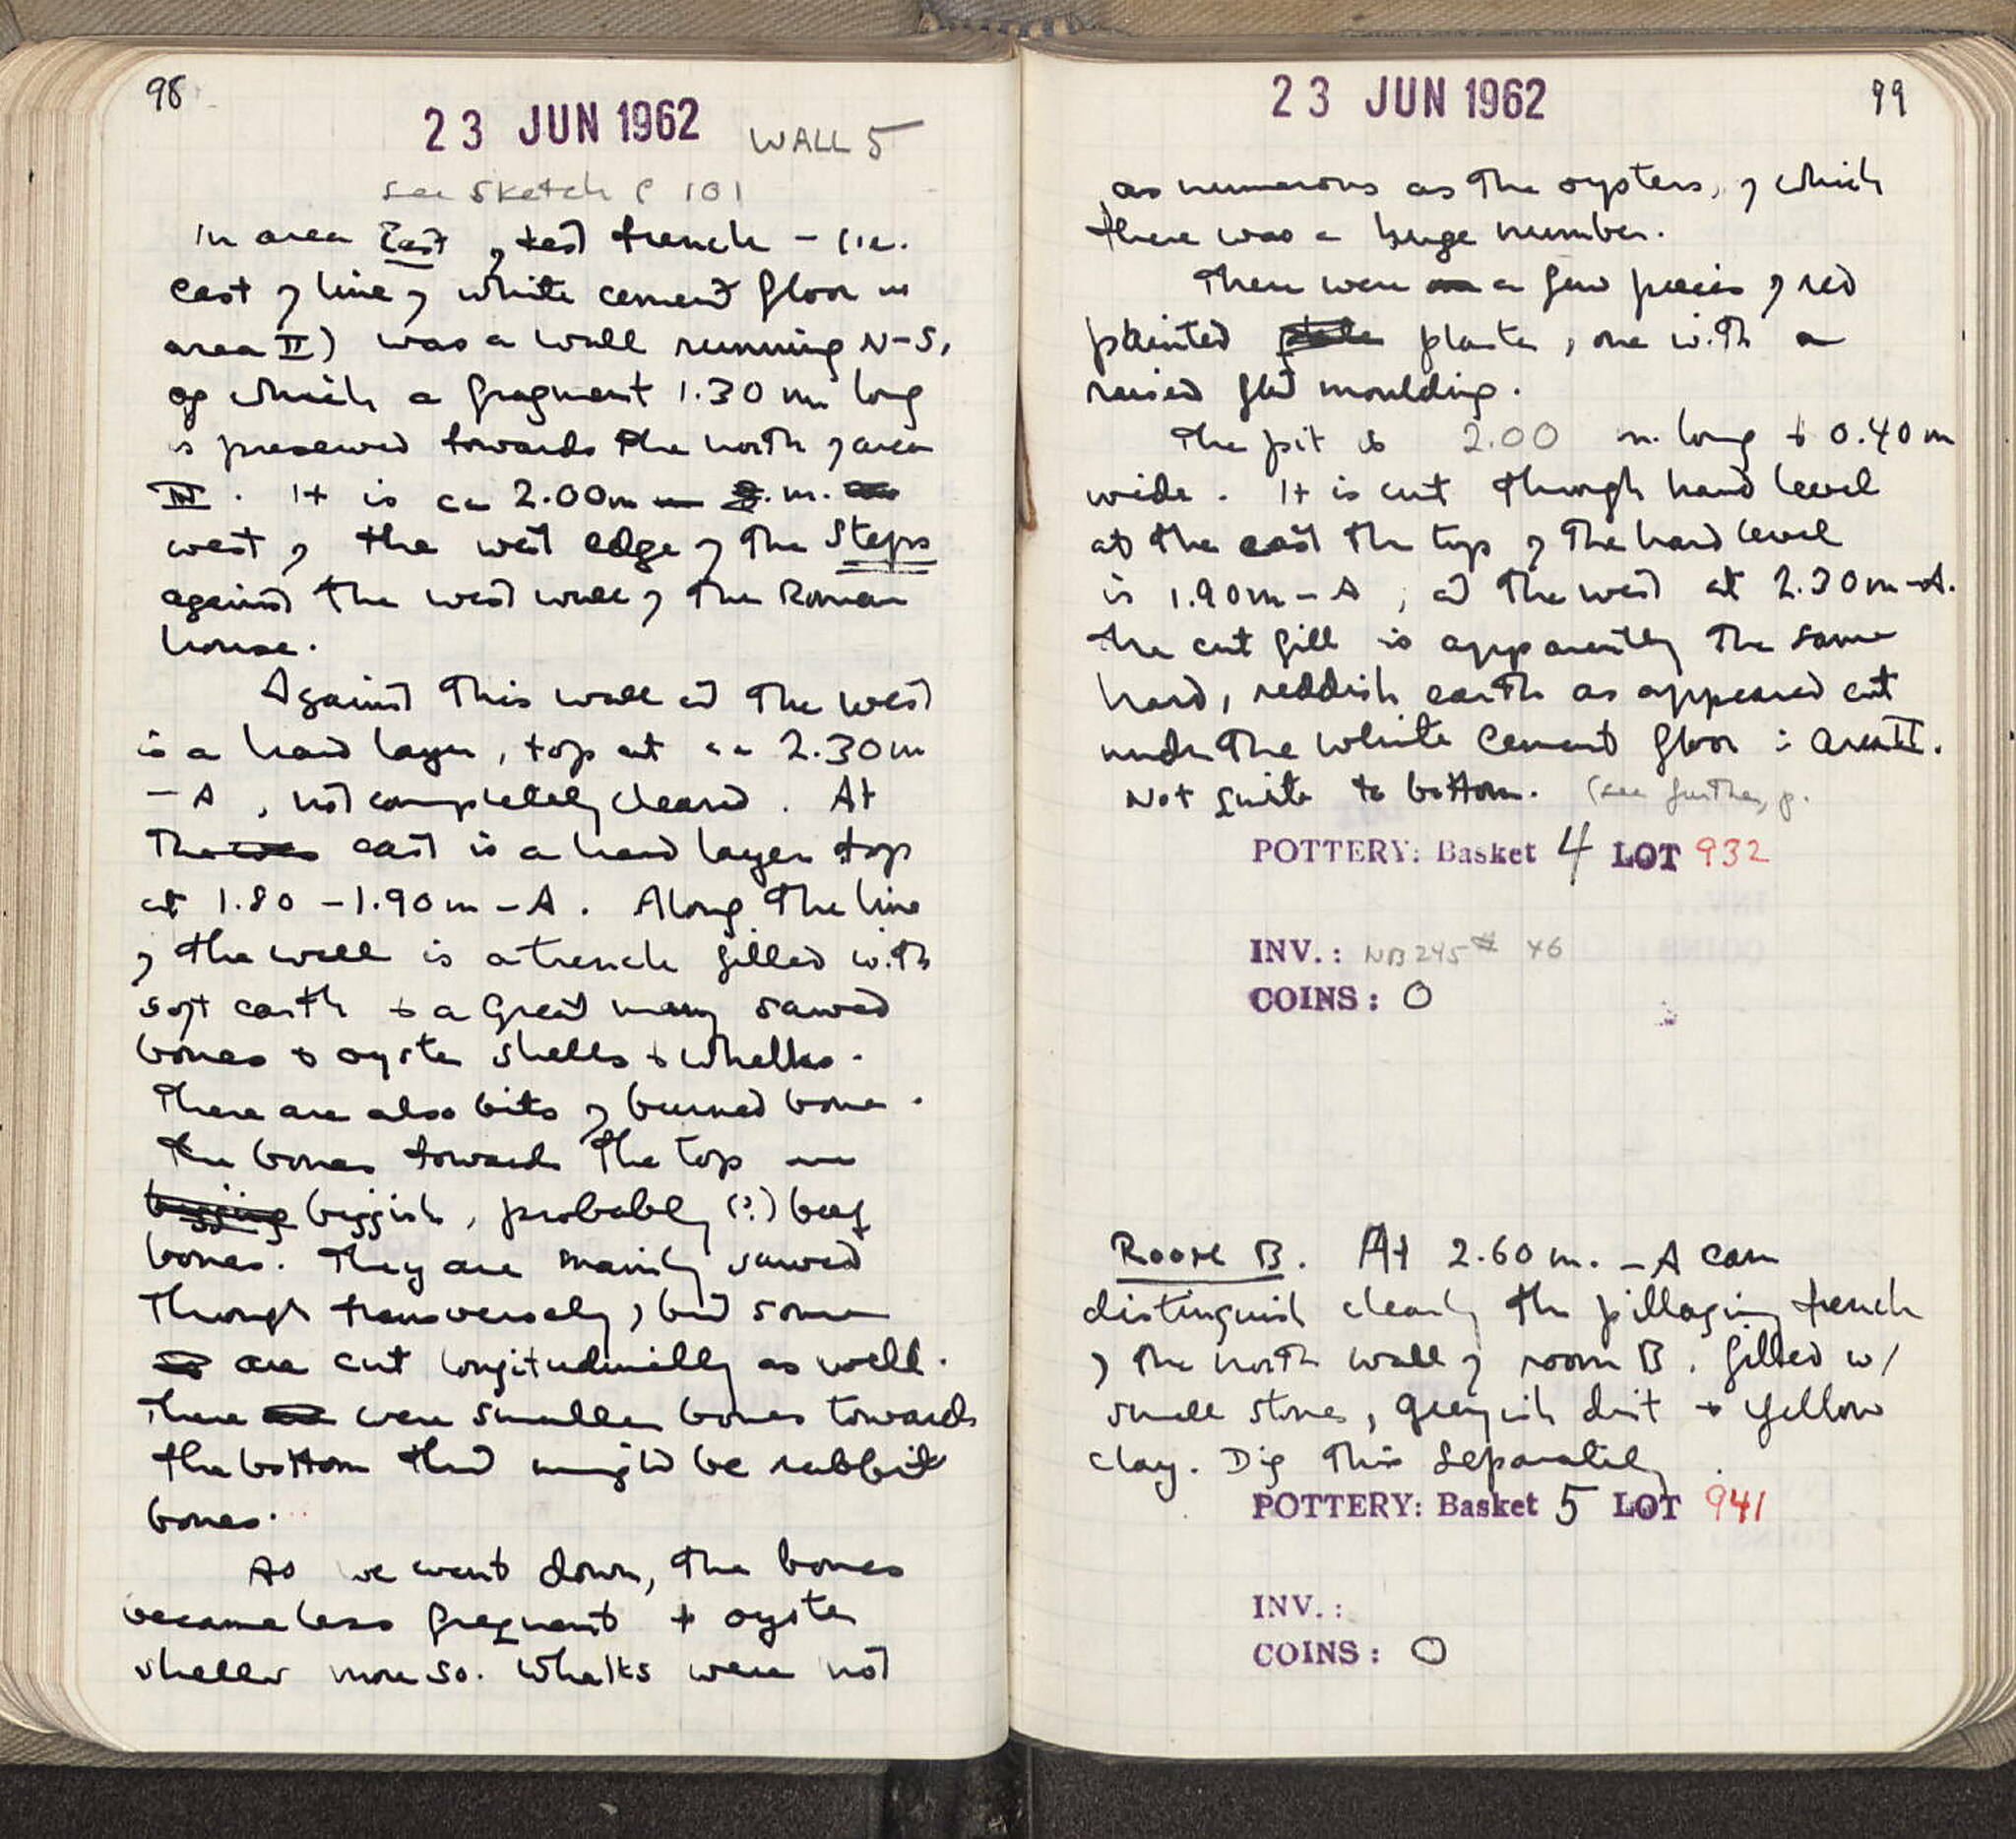 98
23 JUN 1962 WALL 5
see sketch p 101
In area East of test trench - (i.e.
east of line of white cement floor in
area II) was a wall running N-S,
of which a fragment 1.30 m long
is preserved towards the north of area
III. It is ca 2.00m m.
west of the west edge of the Steps
against the west wall of the Roman
house.
Against this wall at the west
is a hard layer, top at ca 2.30m
- A, not completely cleared. At
the east is a hard layer top
at 1.80 - 1.90 m - A. Along the line
of the wall is a trench filled with
soft earth + a great many sawed
bones + oyster shells + whelks.
There are also bits of burned bone.
The bones towards the top are
biggish, probably (?) beef
bones. They are mainly sawed
through transversely, but some
are cut longitudinally as well.
There were smaller bones towards
the bottom that might be rabbit
bones.
As we went down, the bones
became less frequent + oyster
shells more so. Whelks were not
23 JUN 1962 99
as numerous as the oysters, of which
there was a huge number.
There were a few pieces of red
painted plaster, one with a
raised flat moulding.
The pit is 2.00 m. long + 0.40 m
wide. It is cut through hard level
at the east the top of the hard level
is 1.90m - A, at the west at 2.30m - A.
The cut fill is apparently the same
hard, reddish earth as appeared cut
under the white cement floor in area II.
Not quite to bottom. (see further, p.
POTTERY: Basket 4 LOT 932
INV.: NB 245 # 46
COINS: 0
Room B. At 2.60 m. - A can
distinguish clearly the pillaging trench
of the north wall of room B. filled w/
small stones, greyish dirt + yellow
clay. Dig this separately.
POTTERY: Basket 5 LOT 941
INV.:
COINS: 0